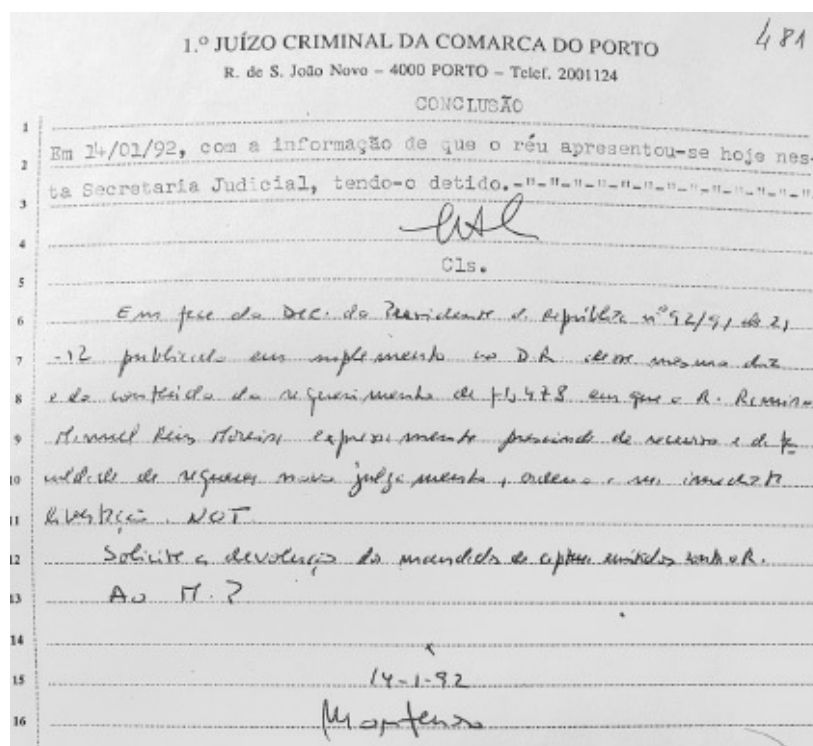 481
1.º JUÍZO CRIMINAL DA COMARCA DO PORTO
R. de S. João Novo – 4000 PORTO – Telef. 2001124
CONCLUSÃO
1
Em 14/01/92, com a informação de que o réu apresentou-se hoje nes-
2
ta Secretaria Judicial, tendo-o detido.-"-"-"-"-"-"-"-"-"-"-"-"
3
4
Cls.
5
6 Em face do Dec. do Presidente da República nº 92/91 de 21
7 -12 publicado em suplemento no D.R. desse mesmo dia
8 e do conteúdo do requerimento de fls 478 em que o R. Romino
9 Manuel Reis Moreira expressamente prescinde de recurso e da
10 de requerer novo julgamento, ordeno a sua imediata
11 libertação. NOT.
12 Solicite a devolução do mandados de captura emitidos contra o R.
13 Ao M. P
14
15 14-1-92
16